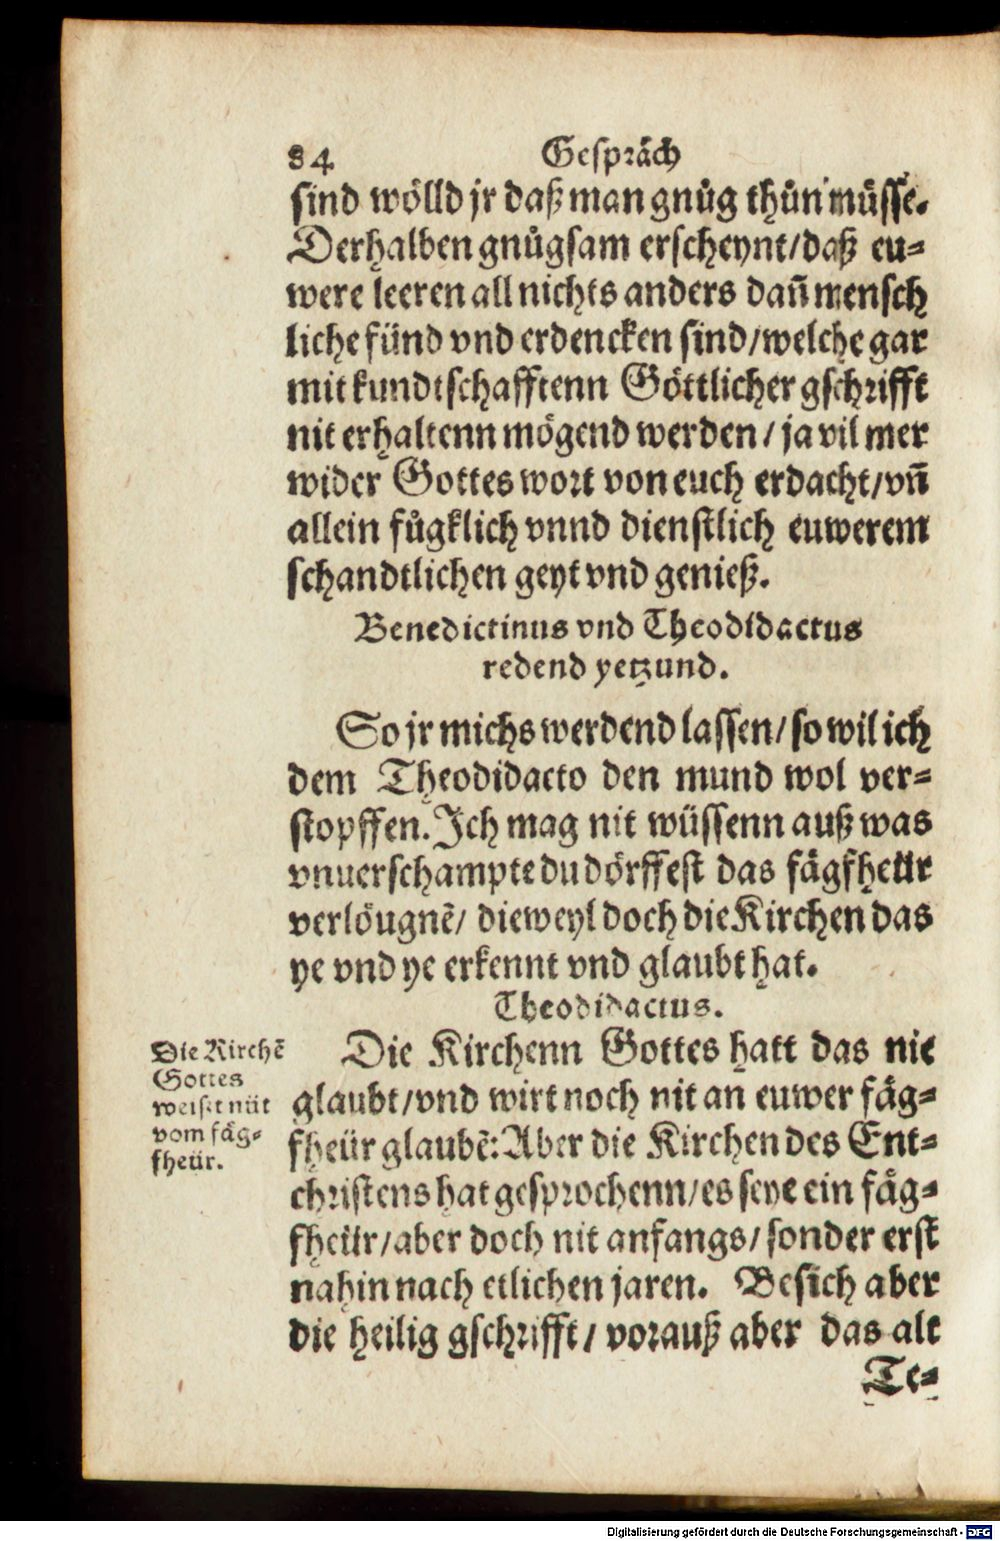 84 Gespräch
sind wölld jr daß man gnůg thůn müsse.
Derhalben gnůgsam erscheynt/daß eu=
were leeren all nichts anders dañ mensch
liche fünd vnd erdencken sind/welche gar
mit kundtschafftenn Göttlicher gschrifft
nit erhaltenn mögend werden/ ja vil mer
wider Gottes wort von euch erdacht/vñ
allein fůgklich vnnd dienstlich euwerem
schandtlichen geyt vnd genieß.
Benedictinus vnd Theodidactus
redend yetzund.
So jr michs werdend lassen/so wil ich
dem Theodidacto den mund wol ver=
stopffen. Jch mag nit wüssenn auß was
vnuerschampte du dörffest das fägfheür
verlöugnē/ dieweyl doch die Kirchen das
ye vnd ye erkennt vnd glaubt hat.
Theodidactus.
Die Kirchenn Gottes hatt das nie
glaubt/vnd wirt noch nit an euwer fäg=
fheür glaubē: Aber die Kirchen des Ent=
christens hat gesprochenn/es seye ein fäg=
fheür/aber doch nit anfangs/sonder erst
nahin nach etlichen jaren. Besich aber
die heilig gschrifft/ vorauß aber das alt
Te=
Die Kirchē
Gottes
weißt nüt
vom fäg=
fheür.
Digitalisierung gefördert durch die Deutsche Forschungsgemeinschaft - DFG